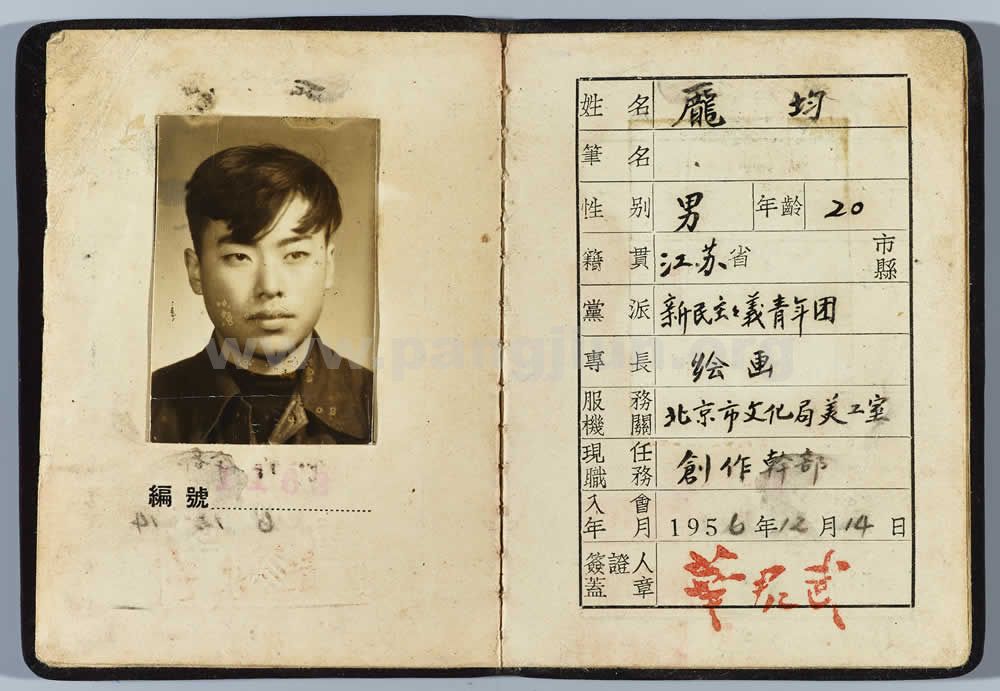 編號
1168
姓名 龐 均
筆名
性别 男 年齡 20
籍貫 江苏省 市縣
黨派 新民主主義青年团
專長 绘画
服務機關 北京市文化局美工室
現任職務 創作幹部
入會年月 1956年12月14日
簽證人蓋章 華君武
www.pangjiun.org